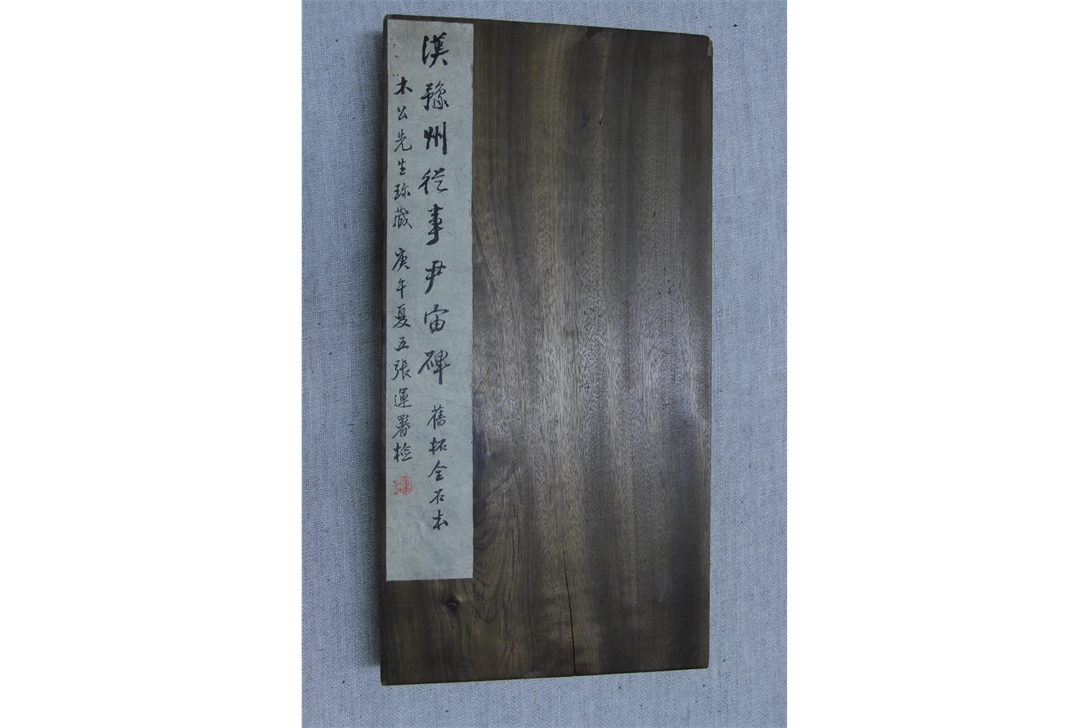 漢豫州從事尹宙碑 舊拓全石本
木公先生珎藏 庚午夏五張運署檢